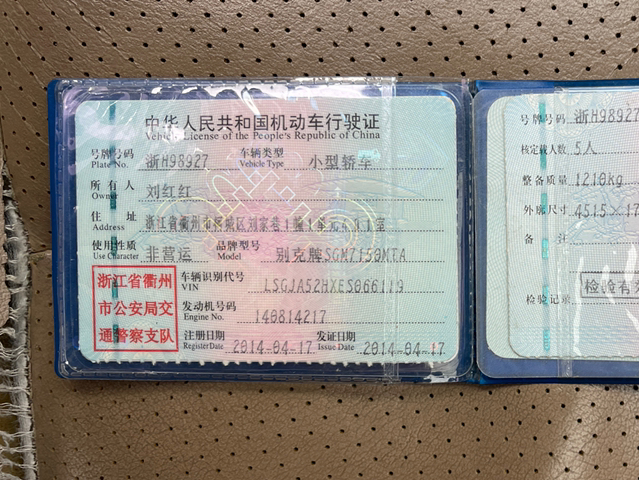 中华人民共和国机动车行驶证
Vehicle License of the People's Republic of China
号牌号码 浙H98927 车辆类型 小型轿车
Plate No. Vehicle Type
所有人 刘红红
Owner
住址 浙江省衢州市 区刘家巷1幢1单元 室
Address
使用性质 非营运 品牌型号 别克牌SGM7150MTA
Use Character Model
车辆识别代号 LSGJA52HXES066119
VIN
发动机号码 140814217
Engine No.
注册日期 2014-04-17 发证日期 2014-04-17
Register Date Issue Date
浙江省衢州
市公安局交
通警察支队
号牌号码 浙H98927
核定载人数 5人
整备质量 1210kg
外廓尺寸 4515×17
备注
检验记录 检验有